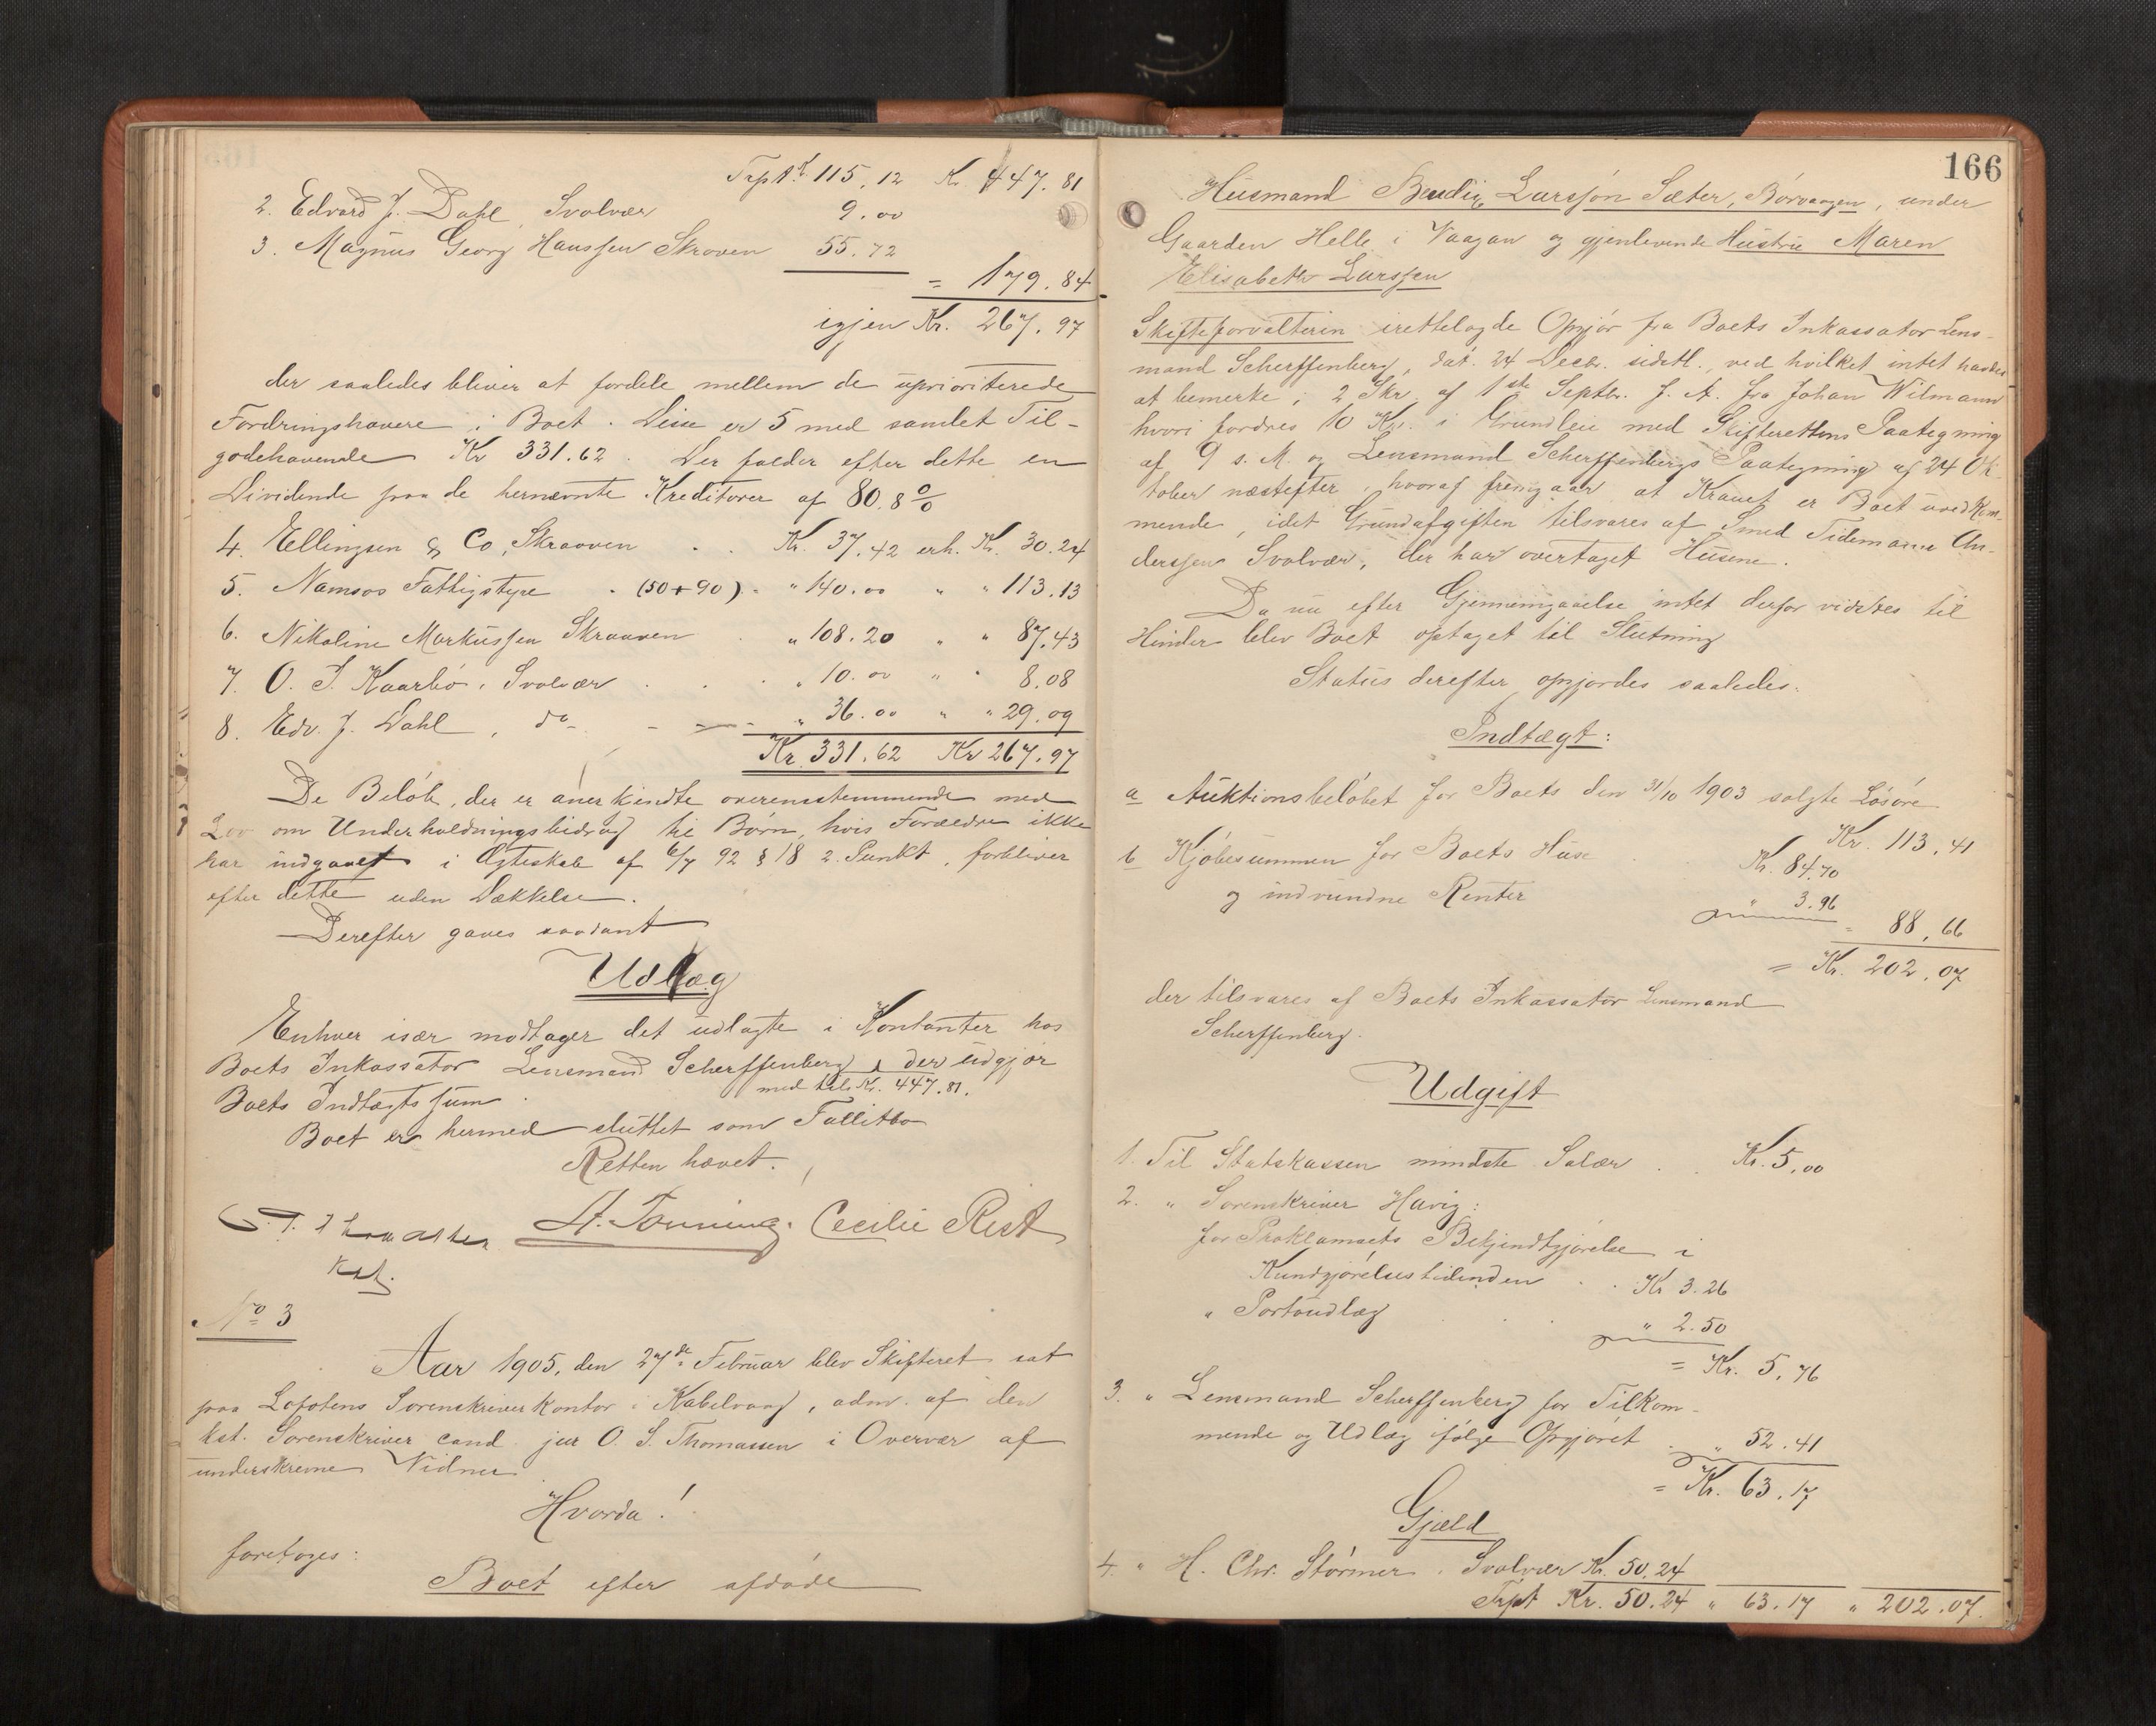 Trpt Kr. 115.12 Kr. 447.81
2. Edvard J. Dahl, Svolvær 9.00
3. Magnus Georg Hanssen Skroven 55.72
= 179.84
igjen Kr. 267.97
der saaledes bliver at fordele mellem de uprioriterede
Fordringshavere i Boet. Disse er 5 med samlet Til-
godehavende Kr 331.62. Der falder efter dette en
Dividende paa de hernævnte Kreditorer af 80.8 %
4. Ellingsen & Co, Skraaven . . Kr. 37.42 erh. Kr. 30.24
5. Namsos Fattigstyre . (50+90) . " 140.00 " " 113.13
6. Nikoline Markussen Skraaven " 108.20 " " 87.43
7. O. J. Kaarbö, Svolvær . . . " 10.00 " " 8.08
8. Edv. J. Dahl, do - - " 36.00 " " 29.09
Kr. 331.62 Kr 267.97
De Beløb, der er anerkjendte overensstemmende med
Lov om Underholdningsbidrag til Børn, hvis Forældre ikke
har indgaaet i Ægteskab af 6/7 92 § 18 2. Punkt, forbliver
efter dette uden Dækkelse.
Derefter gaves saadant
Udlæg
Enhver især modtager det udlagte i Kontanter hos
Boets Inkassator Lensmand Scherffenberg, der udgjør
med tils Kr. 447.81.
Boets Indtægts sum.
Boet er hermed sluttet som Fallitbo
Retten hævet.
A. Tonning. Cecilie Rist
kst.
No 3
Aar 1905, den 27de Februar blev Skifteret sat
paa Lofotens Sorenskriverkontor i Kabelvaag, adm. af den
kst. Sorenskriver cand. jur O. S. Thomassen i Overvær af
underskrevne Vidner
Hvorda!
foretoges:
Boet efter afdøde
166
Husmand Bendix Larssön Sæter, Børvaagen, under
Gaarden Helle i Vaagan og gjenlevende Hustru Maren
Elisabeth Larssen
Skifteforvalteren irettelagde Opgjør fra Boets Inkassator Lens-
mand Scherffenberg, dat. 24 Decbr. sidstl., ved hvilket intet havdes
at bemerke; 2 Skr. af 1ste Septbr. f. A. fra Johan Wilmann
hvori fordres 10 Kr. i Grundleie med Skifterettens Paategning
af 9 s. M. og Lensmand Scherffenbergs Paategning af 24 Ok-
tober næstefter, hvoraf fremgaar at Kravet er Boet uvedkom-
mende, idet Grundafgiften tilsvares af Smed Tidemann An-
derssen Svolvær, der har overtaget Husene.
Da nu efter Gjennemgaaelse intet derfor vidstes til
Hinder blev Boet optaget til Slutning
Status derefter opgjordes saaledes:
Indtægt:
a Auktionsbeløbet for Boets den 31/10 1903 solgte Løsøre
Kr. 113.41
b Kjøbesummen for Boets Huse Kr. 84.70
og indvundne Renter " 3.96
= 88.66
= Kr. 202.07
der tilsvares af Boets Inkassator Lensmand
Scherffenberg.
Udgift
1. Til Statskassen mindste Salær . . Kr. 5.00
2. " Sorenskriver Havig:
for Proklamaets Bekjendtgjørelse i
Kundgjørelsestidenden . . Kr 3.26
" Portoudlæg . . " 2.50
= Kr. 5.76
3. " Lensmand Scherffenberg for Tilkom-
mende og Udlæg ifølge Opgjøret . " 52.41
= Kr. 63.17
Gjæld
4. " H. Chr. Størmer, Svolvær Kr. 50.24
Trpt Kr. 50.24 " 63.17 " 202.07.